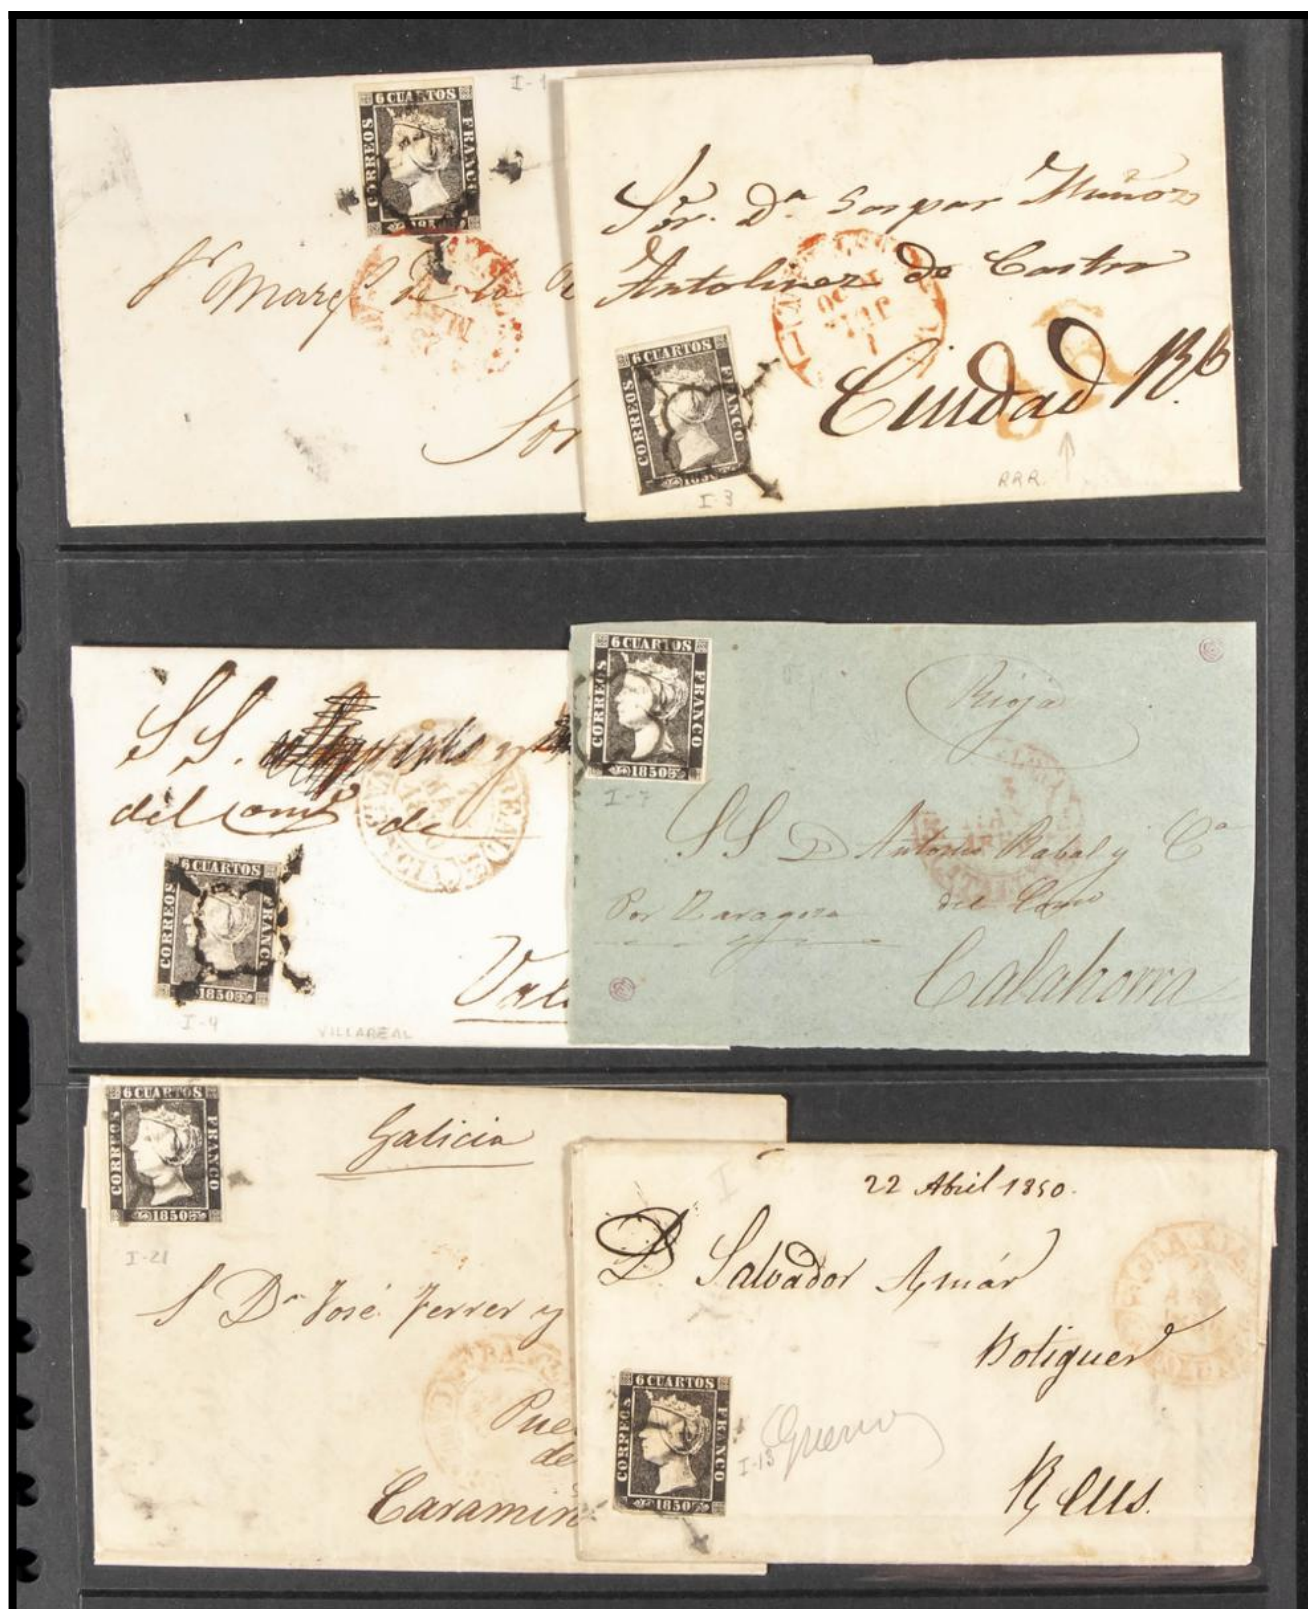 I-1
6 CUARTOS
CORREOS
FRANCO
Sr Marqs de
Sor
Sor. Dn Gaspar Muñoz
Antolinez de Castro
Ciudad Rl
6 CUARTOS
CORREOS
FRANCO
I-3
RRR.
S S.
del Como de
6 CUARTOS
CORREOS
FRANCO
1850
I-4
VILLAREAL
Val
6 CUARTOS
CORREOS
FRANCO
1850
I-7
Rioja
S S D Antonio Rabal y Ca
Por Zaragoza
del Como
Calahorra
6 CUARTOS
CORREOS
FRANCO
1850
I-21
Galicia
S Dn José Ferrer y
Pue
de
Caramiñ
I
22 Abril 1850.
D Salvador Aymár
Botiguer
Reus.
6 CUARTOS
CORREOS
FRANCO
1850
I-13